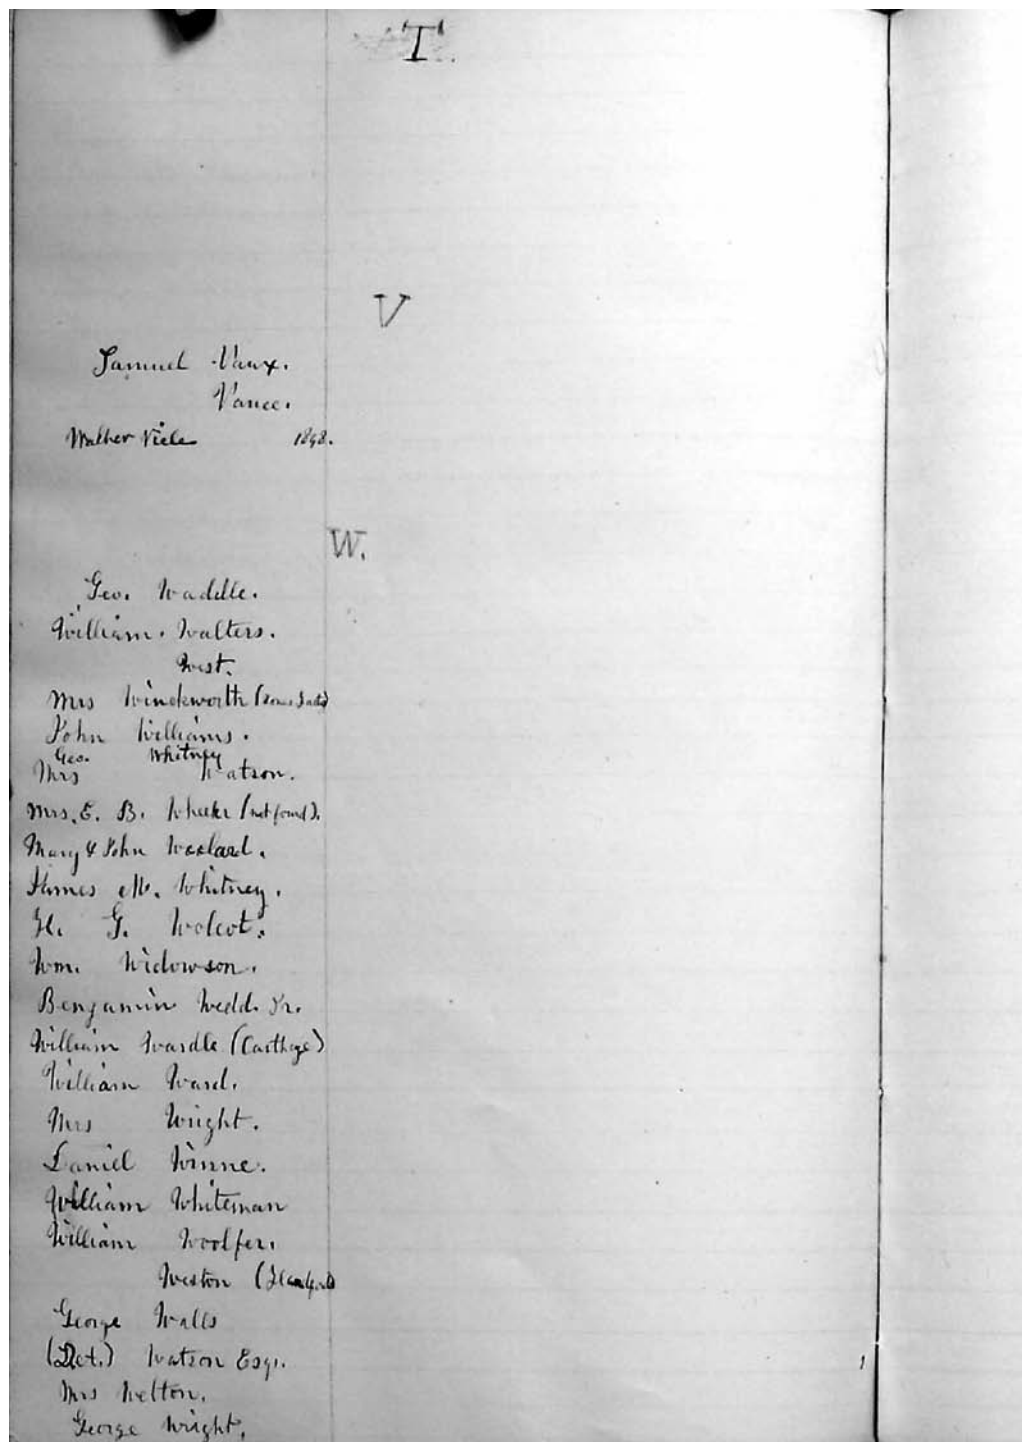 T.
V
Samuel Vaux.
Vance.
Walker Viele 1898.
W.
Geo. Waddle.
William. Walters.
West.
Mrs Winckworth
John Williams.
Geo. Whitney
Mrs Watson.
Mrs. E. B. Wheeler (not found).
Mary & John Woolard.
James M. Whitney.
H. G. Wolcot.
Wm. Widowson.
Benjamin Wedd. Jr.
William Wardle (Carthage)
William Ward.
Mrs Wright.
Daniel Winne.
William Whiteman
William Woolfer.
Weston
George Walls
(Det.) Watson Esq.
Mrs Welton.
George Wright.